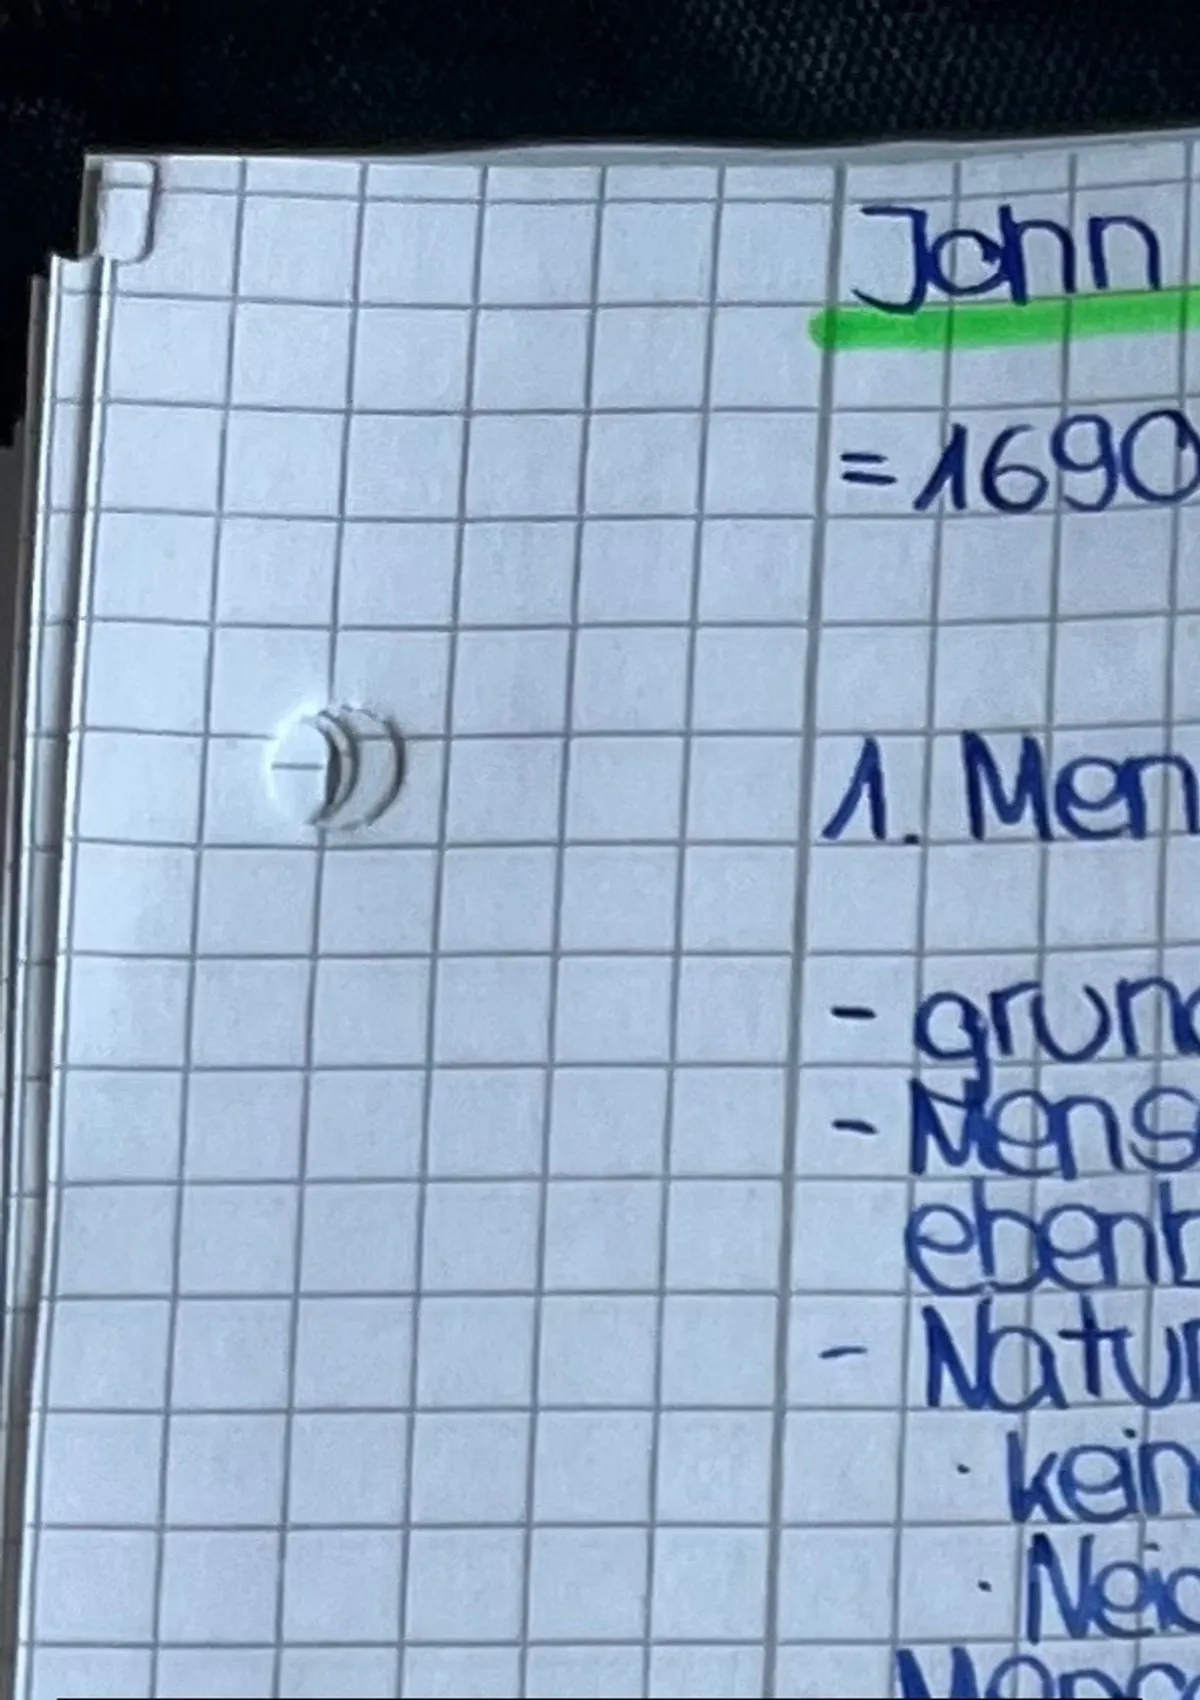 John
=1690
1. Men
- grun
- Mens
ebenb
- Natur
· kein
· Neid
Mensc